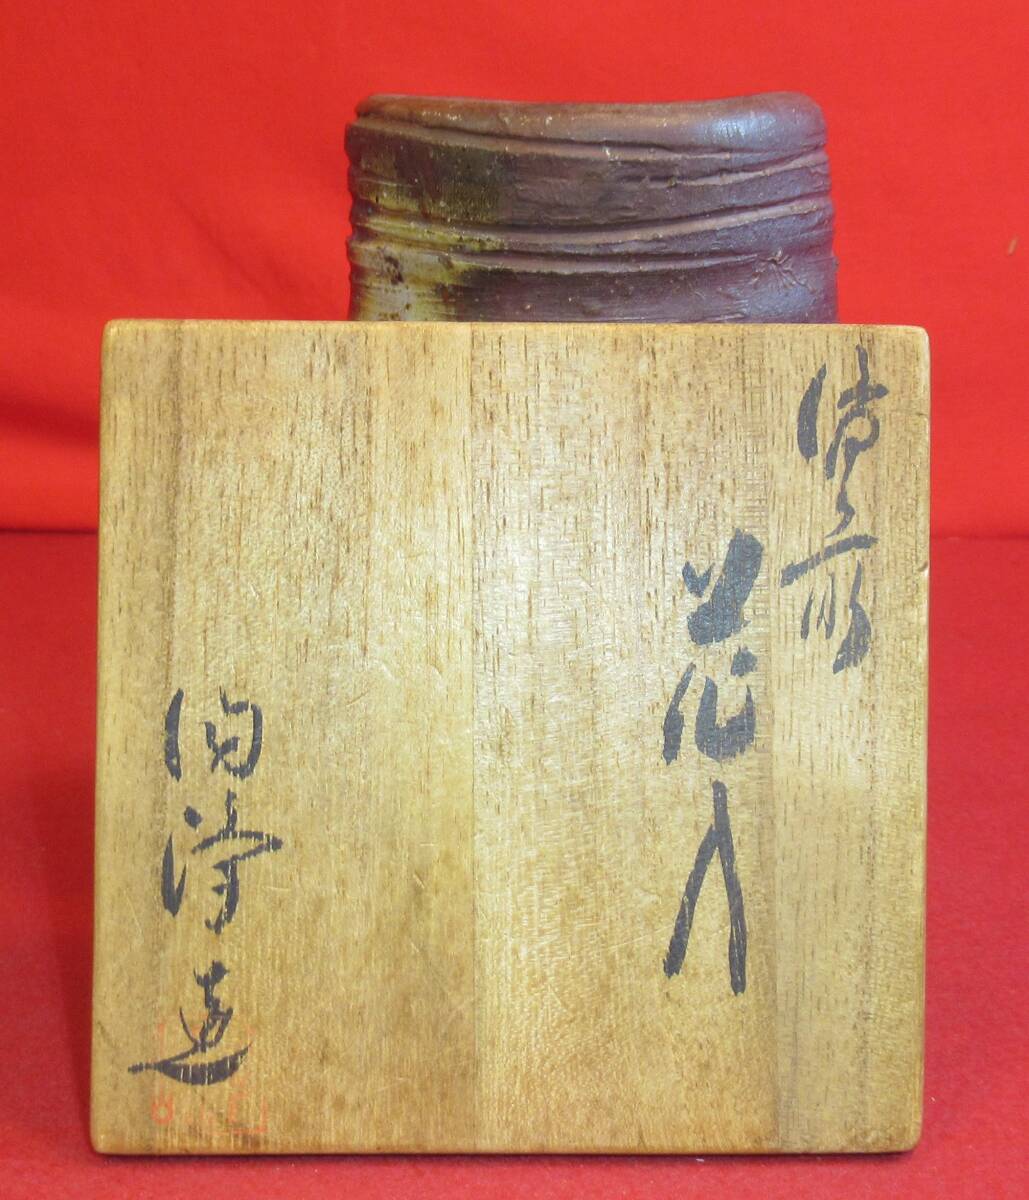 備前
花入
陶浄造